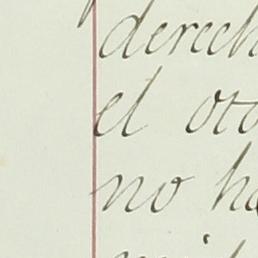 derech
el oto
no ha